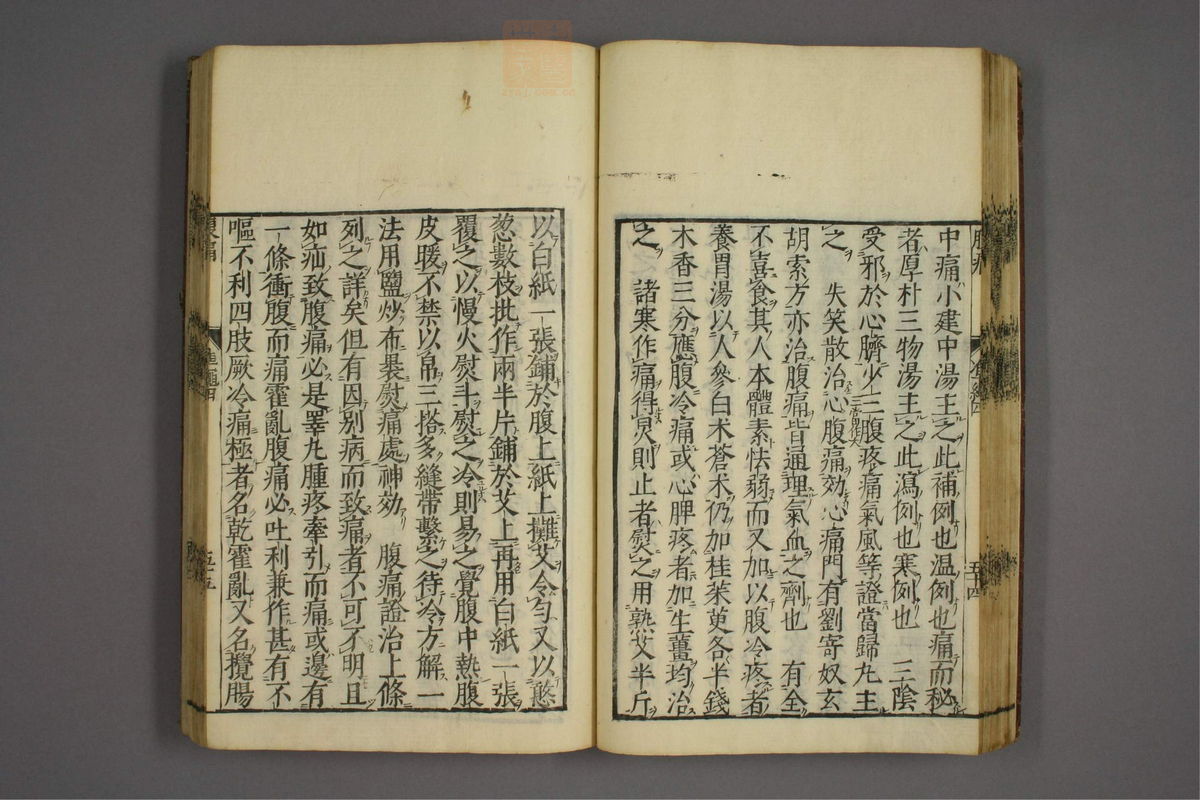 中痛小建中湯主之此補例也温例也痛而秘
者厚朴三物湯主之此瀉例也寒例也　三陰
受邪於心臍少三腹疼痛氣風等證當歸九主
之　失笑散治心腹痛効心痛門有劉寄奴玄
胡索方亦治腹痛皆通理氣血之劑也　有全
不喜食其人本體素怯弱而又加以腹冷疼者
養胃湯以人參白朮蒼朮仍加桂茱萸各半錢
木香三分應腹冷痛或心脾疼者加生薑均治
之　諸寒作痛得炅則止者熨之用熟艾半斤
五十四
以白紙一張鋪於腹上紙上攤艾令勻又以憨
葱數枝批作兩半片鋪於艾上再用白紙一張
覆之以慢火熨斗熨之冷則易之覺腹中熱腹
皮暖不禁以帛三搭多縫帶繫之待冷方解一
法用鹽炒布裹熨痛處神効　腹痛證治上條
列之詳矣但有因別病而致痛者不可不明且
如疝致腹痛必是睪丸腫疼牽引而痛或邊有
一條衝腹而痛霍亂腹痛必吐利兼作甚有不
嘔不利四肢厥冷痛極者名乾霍亂又名攪腸
五十五